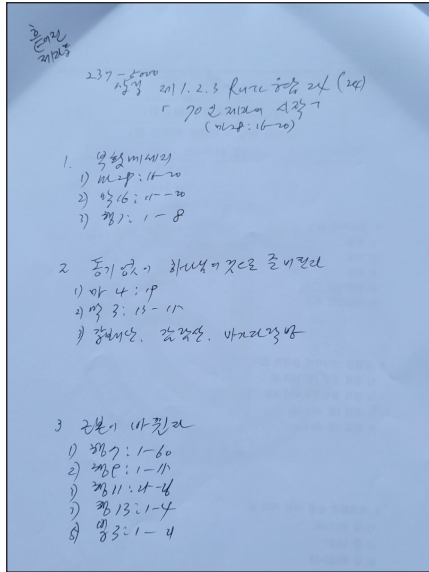 흩어진
제자들
237-5000
상설
제1.2.3 RUTC 응답 24 (24)
「70인 제자의 시작」
(마28:16-20)
1. 부활메세지
1) 마28:16-20
2) 막16:15-20
3) 행1:1-8
2 동기 없이 하나님의 것으로 준비된다
1) 마 4:19
2) 막 3:13-15
3) 갈보리산, 감람산, 마가다락방
3 근본이 바뀐다
1) 행7:1-60
2) 행9:1-15
행11:
행13:1-4
3:1-